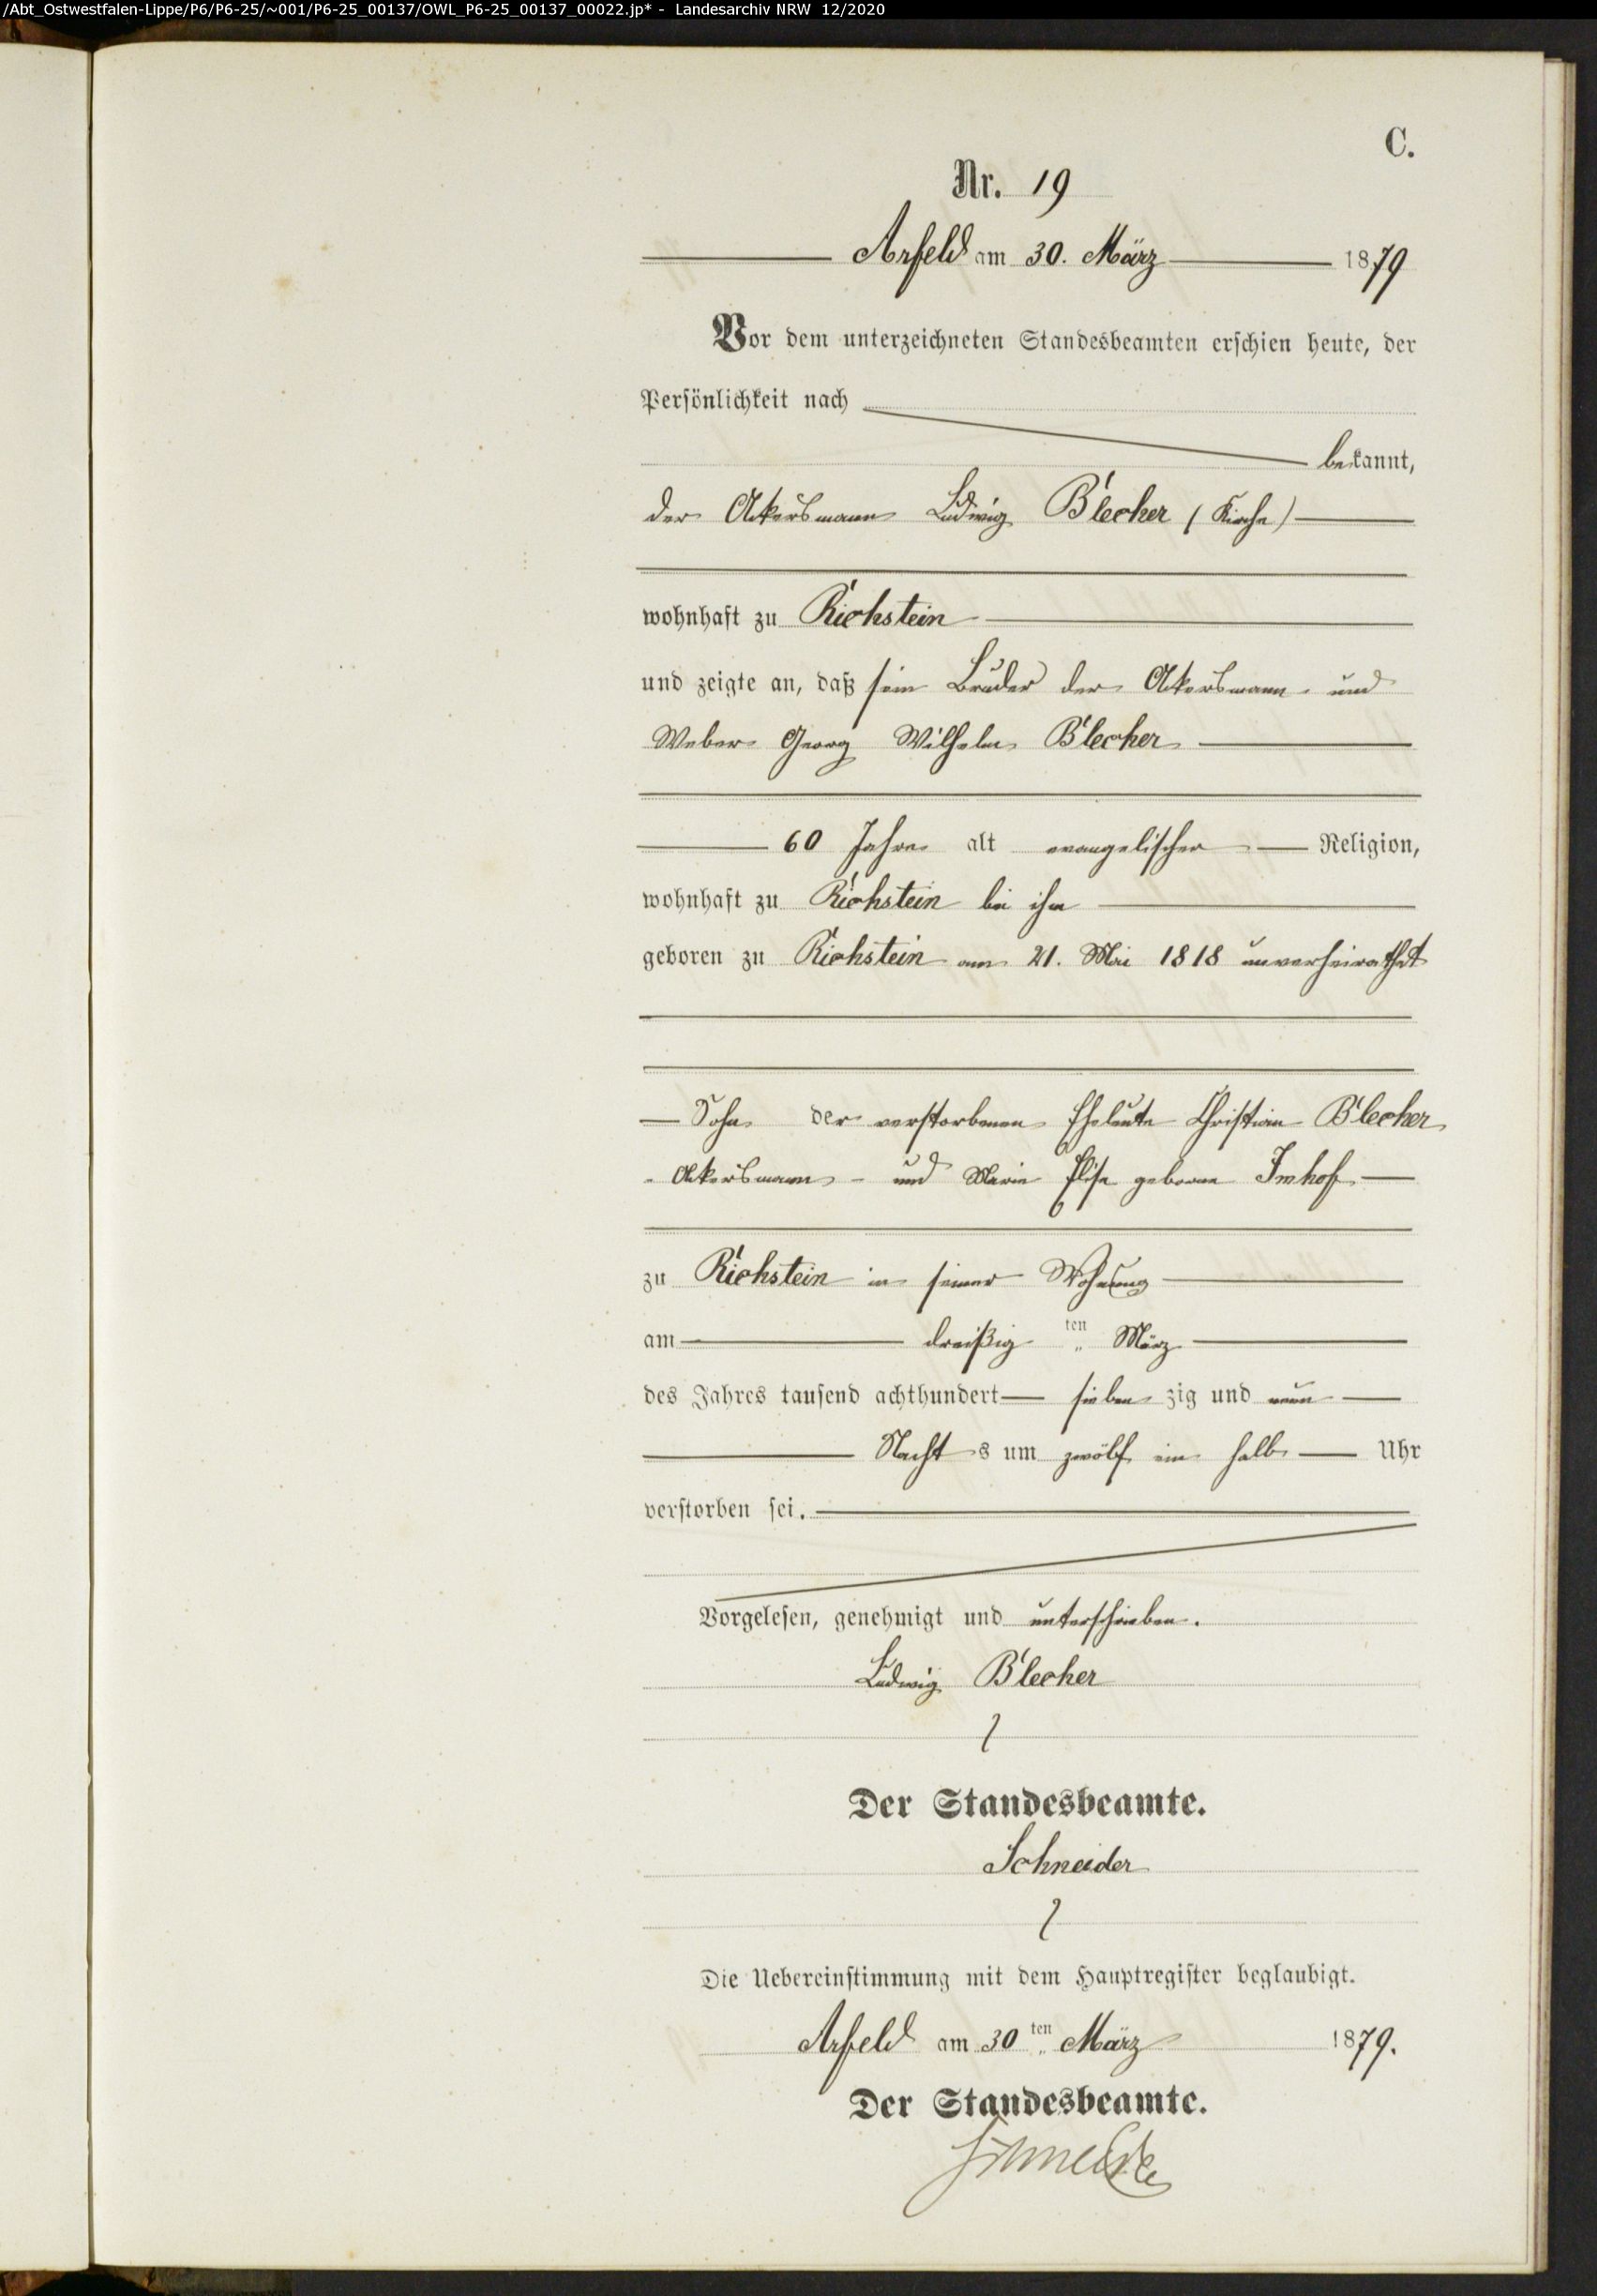 /Abt_Ostwestfalen-Lippe/P6/P6-25/~001/P6-25_00137/OWL_P6-25_00137_00022.jp* - Landesarchiv NRW 12/2020
C.
Nr. 19
Arfeld am 30. März 1879
Vor dem unterzeichneten Standesbeamten erschien heute, der
Persönlichkeit nach
bekannt,
der Ackersmann Ludwig Blecher (Kirche)
wohnhaft zu Richstein
und zeigte an, daß sein Bruder der Ackersmann und
Weber Georg Wilhelm Blecher
60 Jahre alt evangelischer Religion,
wohnhaft zu Richstein bei ihm
geboren zu Richstein am 21. Mai 1818 unverheirathet
Sohn der verstorbenen Eheleute Christian Blecher
- Ackersmann - und Marie Elise geborne Imhof
zu Richstein in seiner Wohnung
am dreißig ten März
des Jahres tausend achthundert sieben zig und neun
Nacht s um zwölf ein halb Uhr
verstorben sei.
Vorgelesen, genehmigt und unterschrieben.
Ludwig Blecher
Der Standesbeamte.
Schneider
Die Uebereinstimmung mit dem Hauptregister beglaubigt.
Arfeld am 30 ten März 1879.
Der Standesbeamte.
Schneider